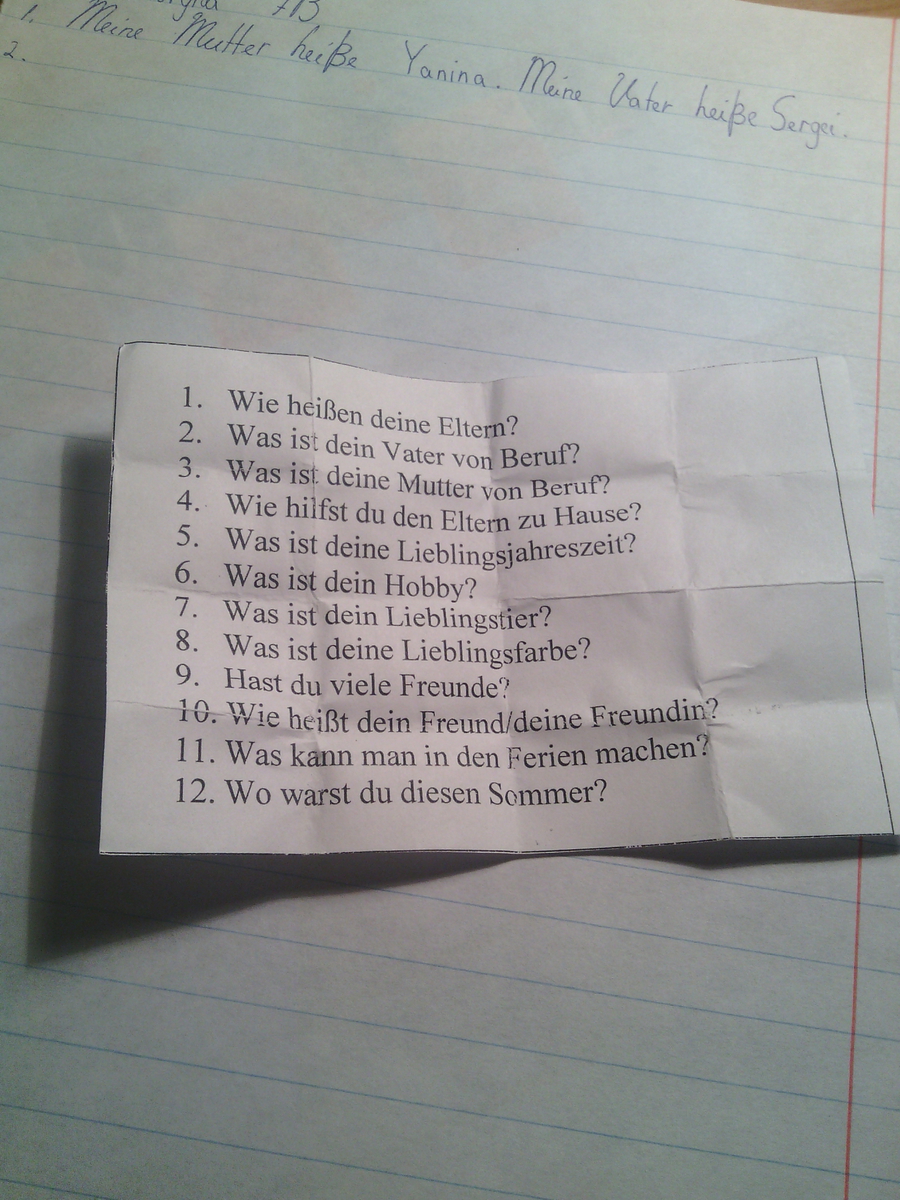 7B
1. Meine Mutter heiße Yanina. Meine Vater heiße Sergei.
2.
1. Wie heißen deine Eltern?
2. Was ist dein Vater von Beruf?
3. Was ist deine Mutter von Beruf?
4. Wie hilfst du den Eltern zu Hause?
5. Was ist deine Lieblingsjahreszeit?
6. Was ist dein Hobby?
7. Was ist dein Lieblingstier?
8. Was ist deine Lieblingsfarbe?
9. Hast du viele Freunde?
10. Wie heißt dein Freund/deine Freundin?
11. Was kann man in den Ferien machen?
12. Wo warst du diesen Sommer?